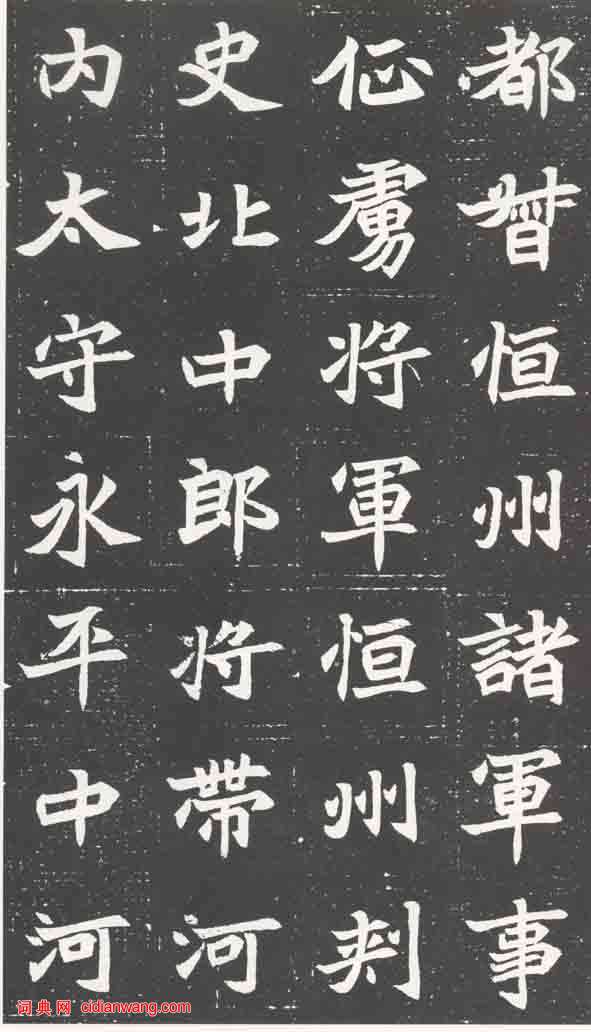 都督恒州諸軍事
征虜将軍恒州刺
史北中郎将帶河
内太守永平中河
词典网 cidianwang.com